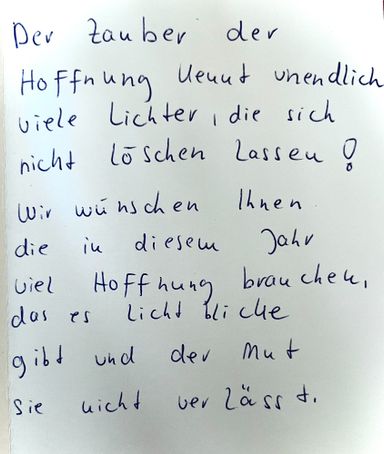 Der Zauber der
Hoffnung kennt unendlich
viele Lichter, die sich
nicht löschen lassen!
Wir wünschen Ihnen
die in diesem Jahr
viel Hoffnung brauchen,
das es Licht blicke
gibt und der Mut
sie nicht ver lässt.